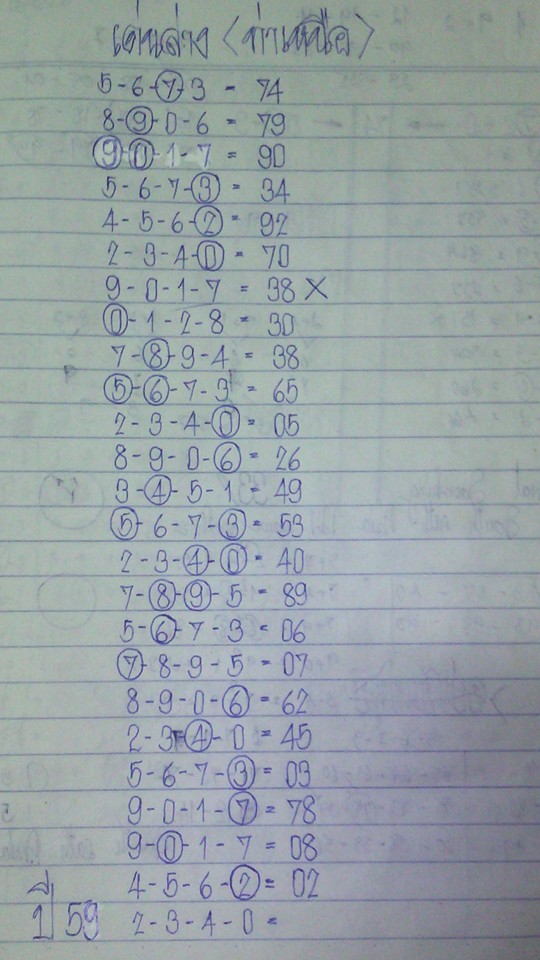 เด่นล่าง <ท่าเหนือ>
5-6-7-3 = 74
8-9-0-6 = 79
9-0-1-7 = 90
5-6-7-3 = 34
4-5-6-2 = 92
2-3-4-0 = 70
9-0-1-7 = 38 X
0-1-2-8 = 30
7-8-9-4 = 38
5-6-7-3 = 65
2-3-4-0 = 05
8-9-0-6 = 26
3-4-5-1 = 49
5-6-7-3 = 53
2-3-4-0 = 40
7-8-9-5 = 89
5-6-7-3 = 06
7-8-9-5 = 07
8-9-0-6 = 62
2-3-4-0 = 45
5-6-7-3 = 03
9-0-1-7 = 78
9-0-1-7 = 08
4-5-6-2 = 02
ปี
1|59 2-3-4-0 =